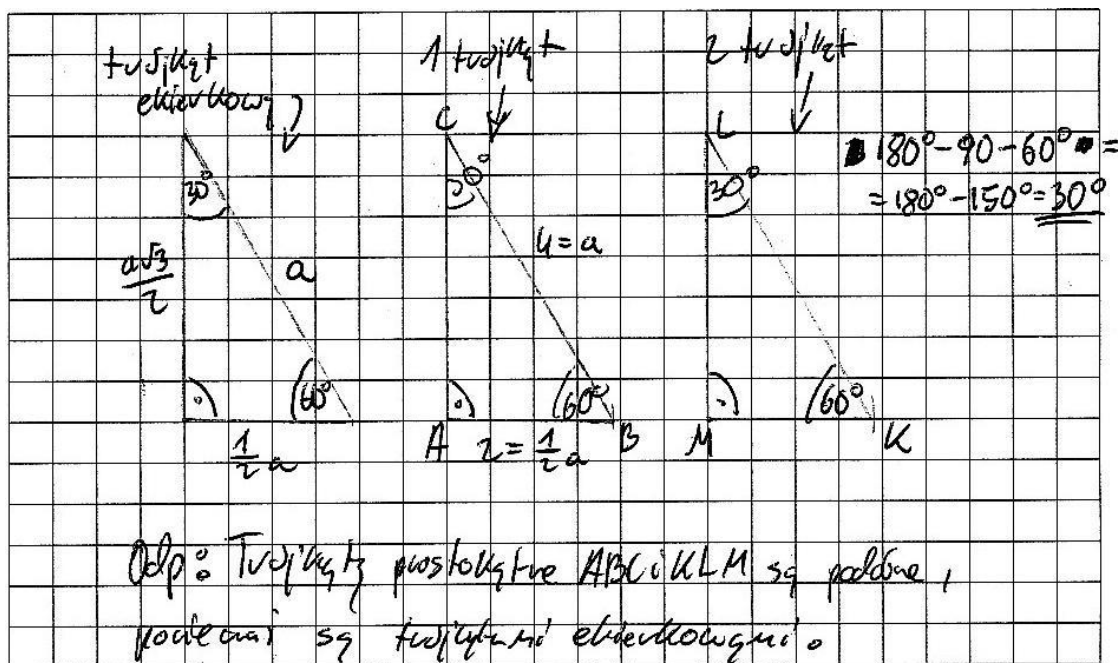 trójkąt
ekierkowy
1 trójkąt
2 trójkąt
C
L
30°
30°
30°
180°-90-60° =
= 180°-150°=30°
a√3/2
a
4=a
60°
60°
60°
1/2 a
A 2=1/2 a B
M
K
Odp: Trójkąty prostokątne ABC i KLM są podobne,
ponieważ są trójkątami ekierkowymi.